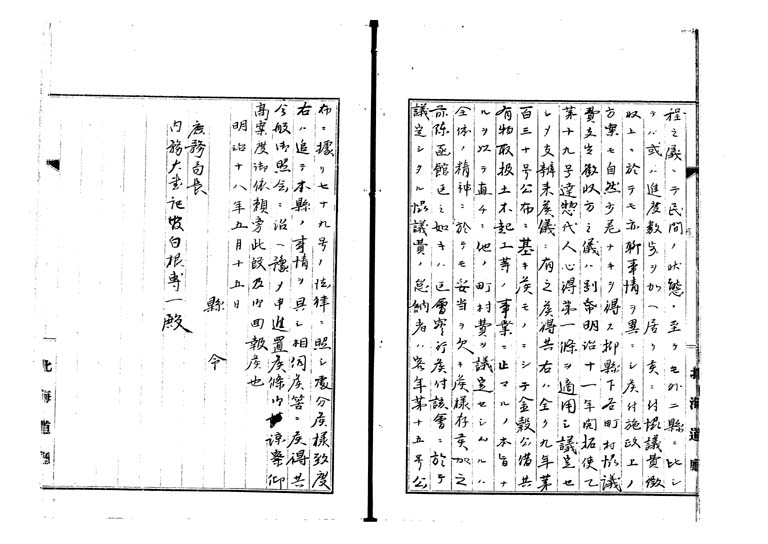 程之儀ニテ民間ノ状態ニ至リモ外二縣ニ比シ
テハ或ハ進度数歩ヲ加ヘ居リ候ニ付協議費徴
収上ニ於テモ亦聊事情ヲ異ニシ候付施政上ノ
方案モ自然少差ナキヲ得ス抑縣下各町村協議
費支出徴収方之儀ハ到底明治十一年開拓使乙
第十九号達惣代人心得第一條ヲ適用シ議定セ
シメ支辨来候儀ニ有之候得共右ハ全ク九年第
百三十号公布ニ基キ候モノニシテ金穀公借共
有物取扱土木起工等ノ事業ニ止マルノ本旨ナ
ルヲ以テ直チニ他ノ町村費ヲ議定セシムルハ
全体ノ精神ニ於テモ妥当ヲ欠キ候様存候加之
前陳函館区之如キハ区會挙行候付該會ニ於テ
議定シタル協議費ノ怠納者ハ客年第十五号公
布ニ據リ七十九号ノ法律ニ照シ處分候様致度
右ハ追テ本縣ノ事情ヲ具シ相伺候筈ニ候得共
今般御照会ニ沿一應申進置候條御諒案仰
高案度御依頼旁此段及御回報候也
明治十八年五月十五日
縣令
庶務局長
内務大書記官白根専一殿
北海道廳
北海道廳